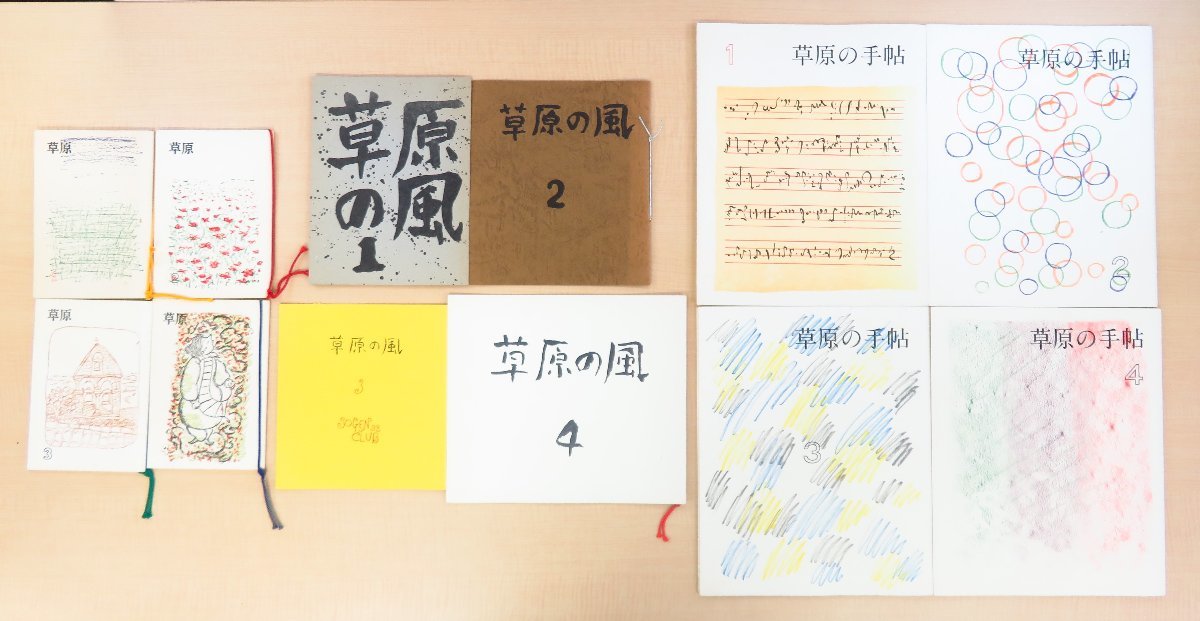 草原
草原
2
草原
3
草原
草原
の風
1
草原の風
2
草原の風
3
SOGEN
CLUB
草原の風
4
1
草原の手帖
草原の手帖
2
草原の手帖
3
草原の手帖
4